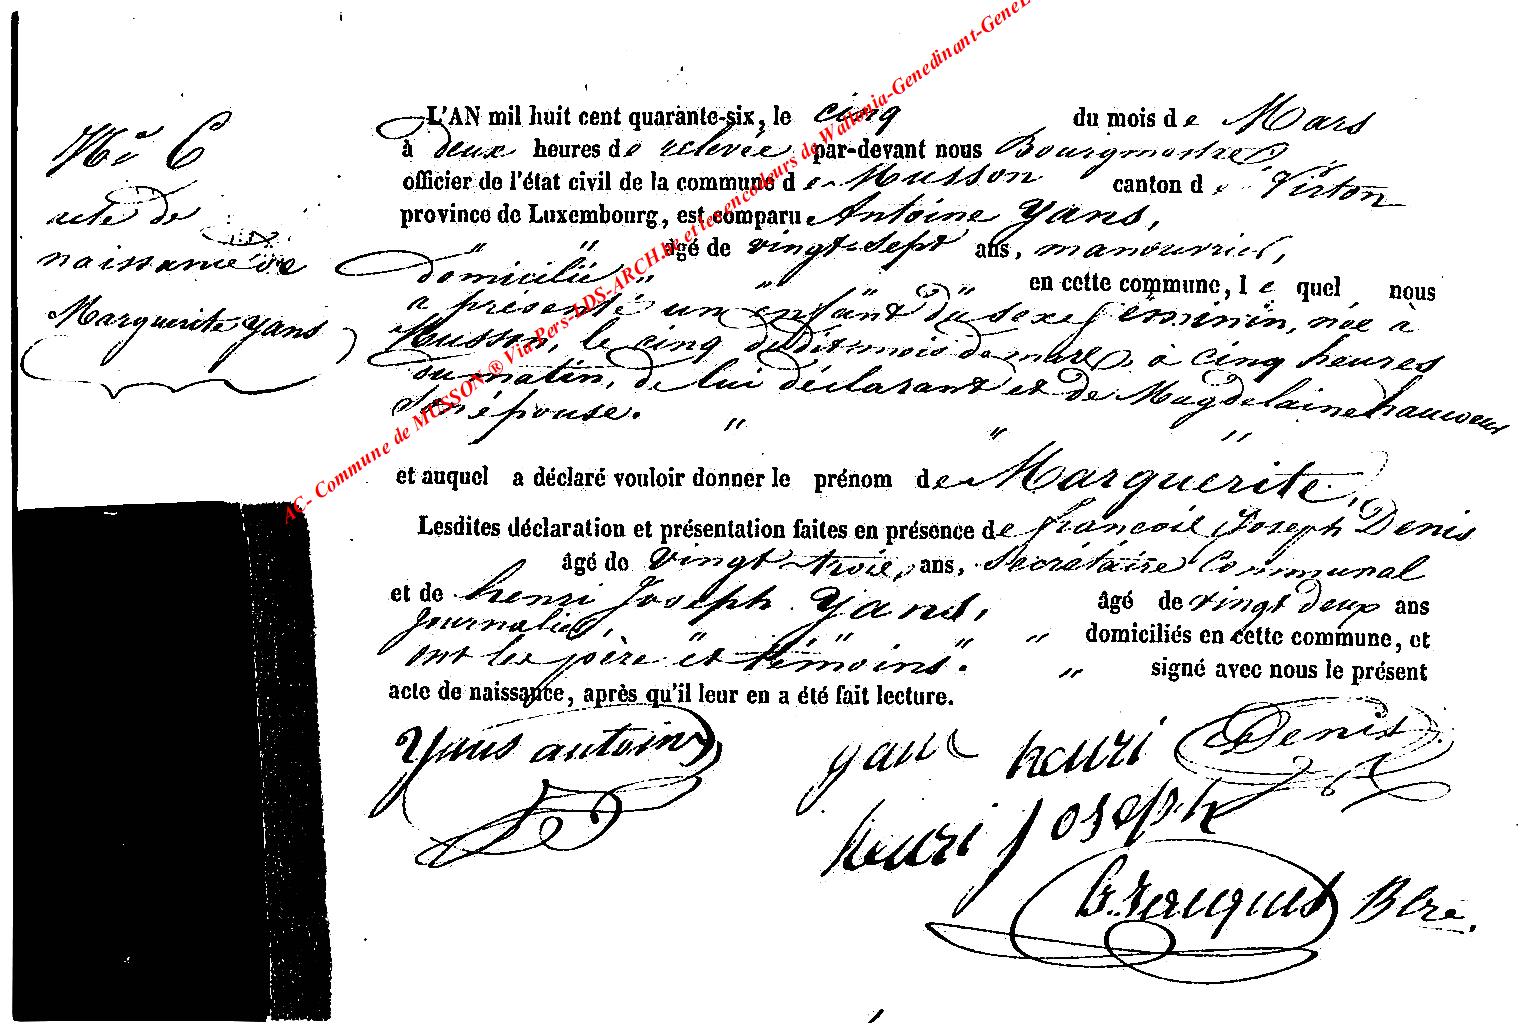 N° 6
acte de
naissance de
Marguerite Yans
L'AN mil huit cent quarante-six, le cinq du mois de Mars
à deux heures de relevée par-devant nous Bourgmestre
officier de l'état civil de la commune de Musson canton de Virton
province de Luxembourg, est comparu Antoine Yans,
" " âgé de vingt-sept ans, manouvrier,
domicilié " " " " en cette commune, le quel nous
a présenté un enfant du sexe féminin, née à
Musson, le cinq dudit mois de mars, à cinq heures
du matin, de lui déclarant et de Magdelaine
son épouse. " " "
et auquel a déclaré vouloir donner le prénom de Marguerite,
Lesdites déclaration et présentation faites en présence de françois Joseph Denis
âgé de vingt-trois, ans, Secrétaire Communal
et de henri Joseph Yans, âgé de vingt deux ans
Journalier, " " " " " domiciliés en cette commune, et
ont les père et témoins. " signé avec nous le présent
acte de naissance, après qu'il leur en a été fait lecture.
Yans antoine
yans henri Denis
henri Joseph
Bre.
AC- Commune de MUSSON ® Via Pers-LDS-ARCH.be et les encodeurs de Wallonia-Genedinant-GeneL